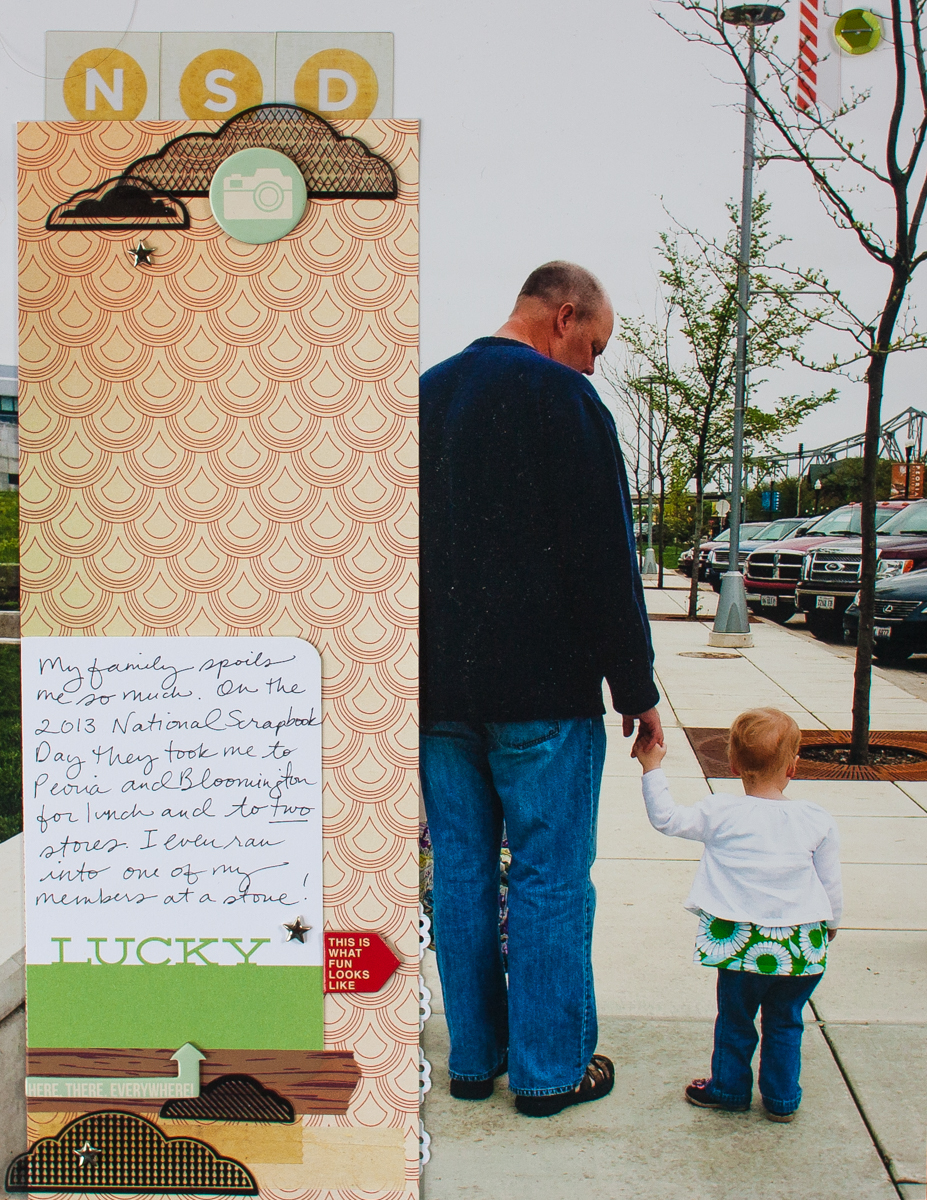 NSD
My family spoils
me so much. On the
2013 National Scrapbook
Day they took me to
Peoria and Bloomington
for lunch and to two
stores. I even ran
into one of my
members at a store!
LUCKY
THIS IS
WHAT
FUN
LOOKS
LIKE
HERE. THERE. EVERYWHERE!
PEORIA